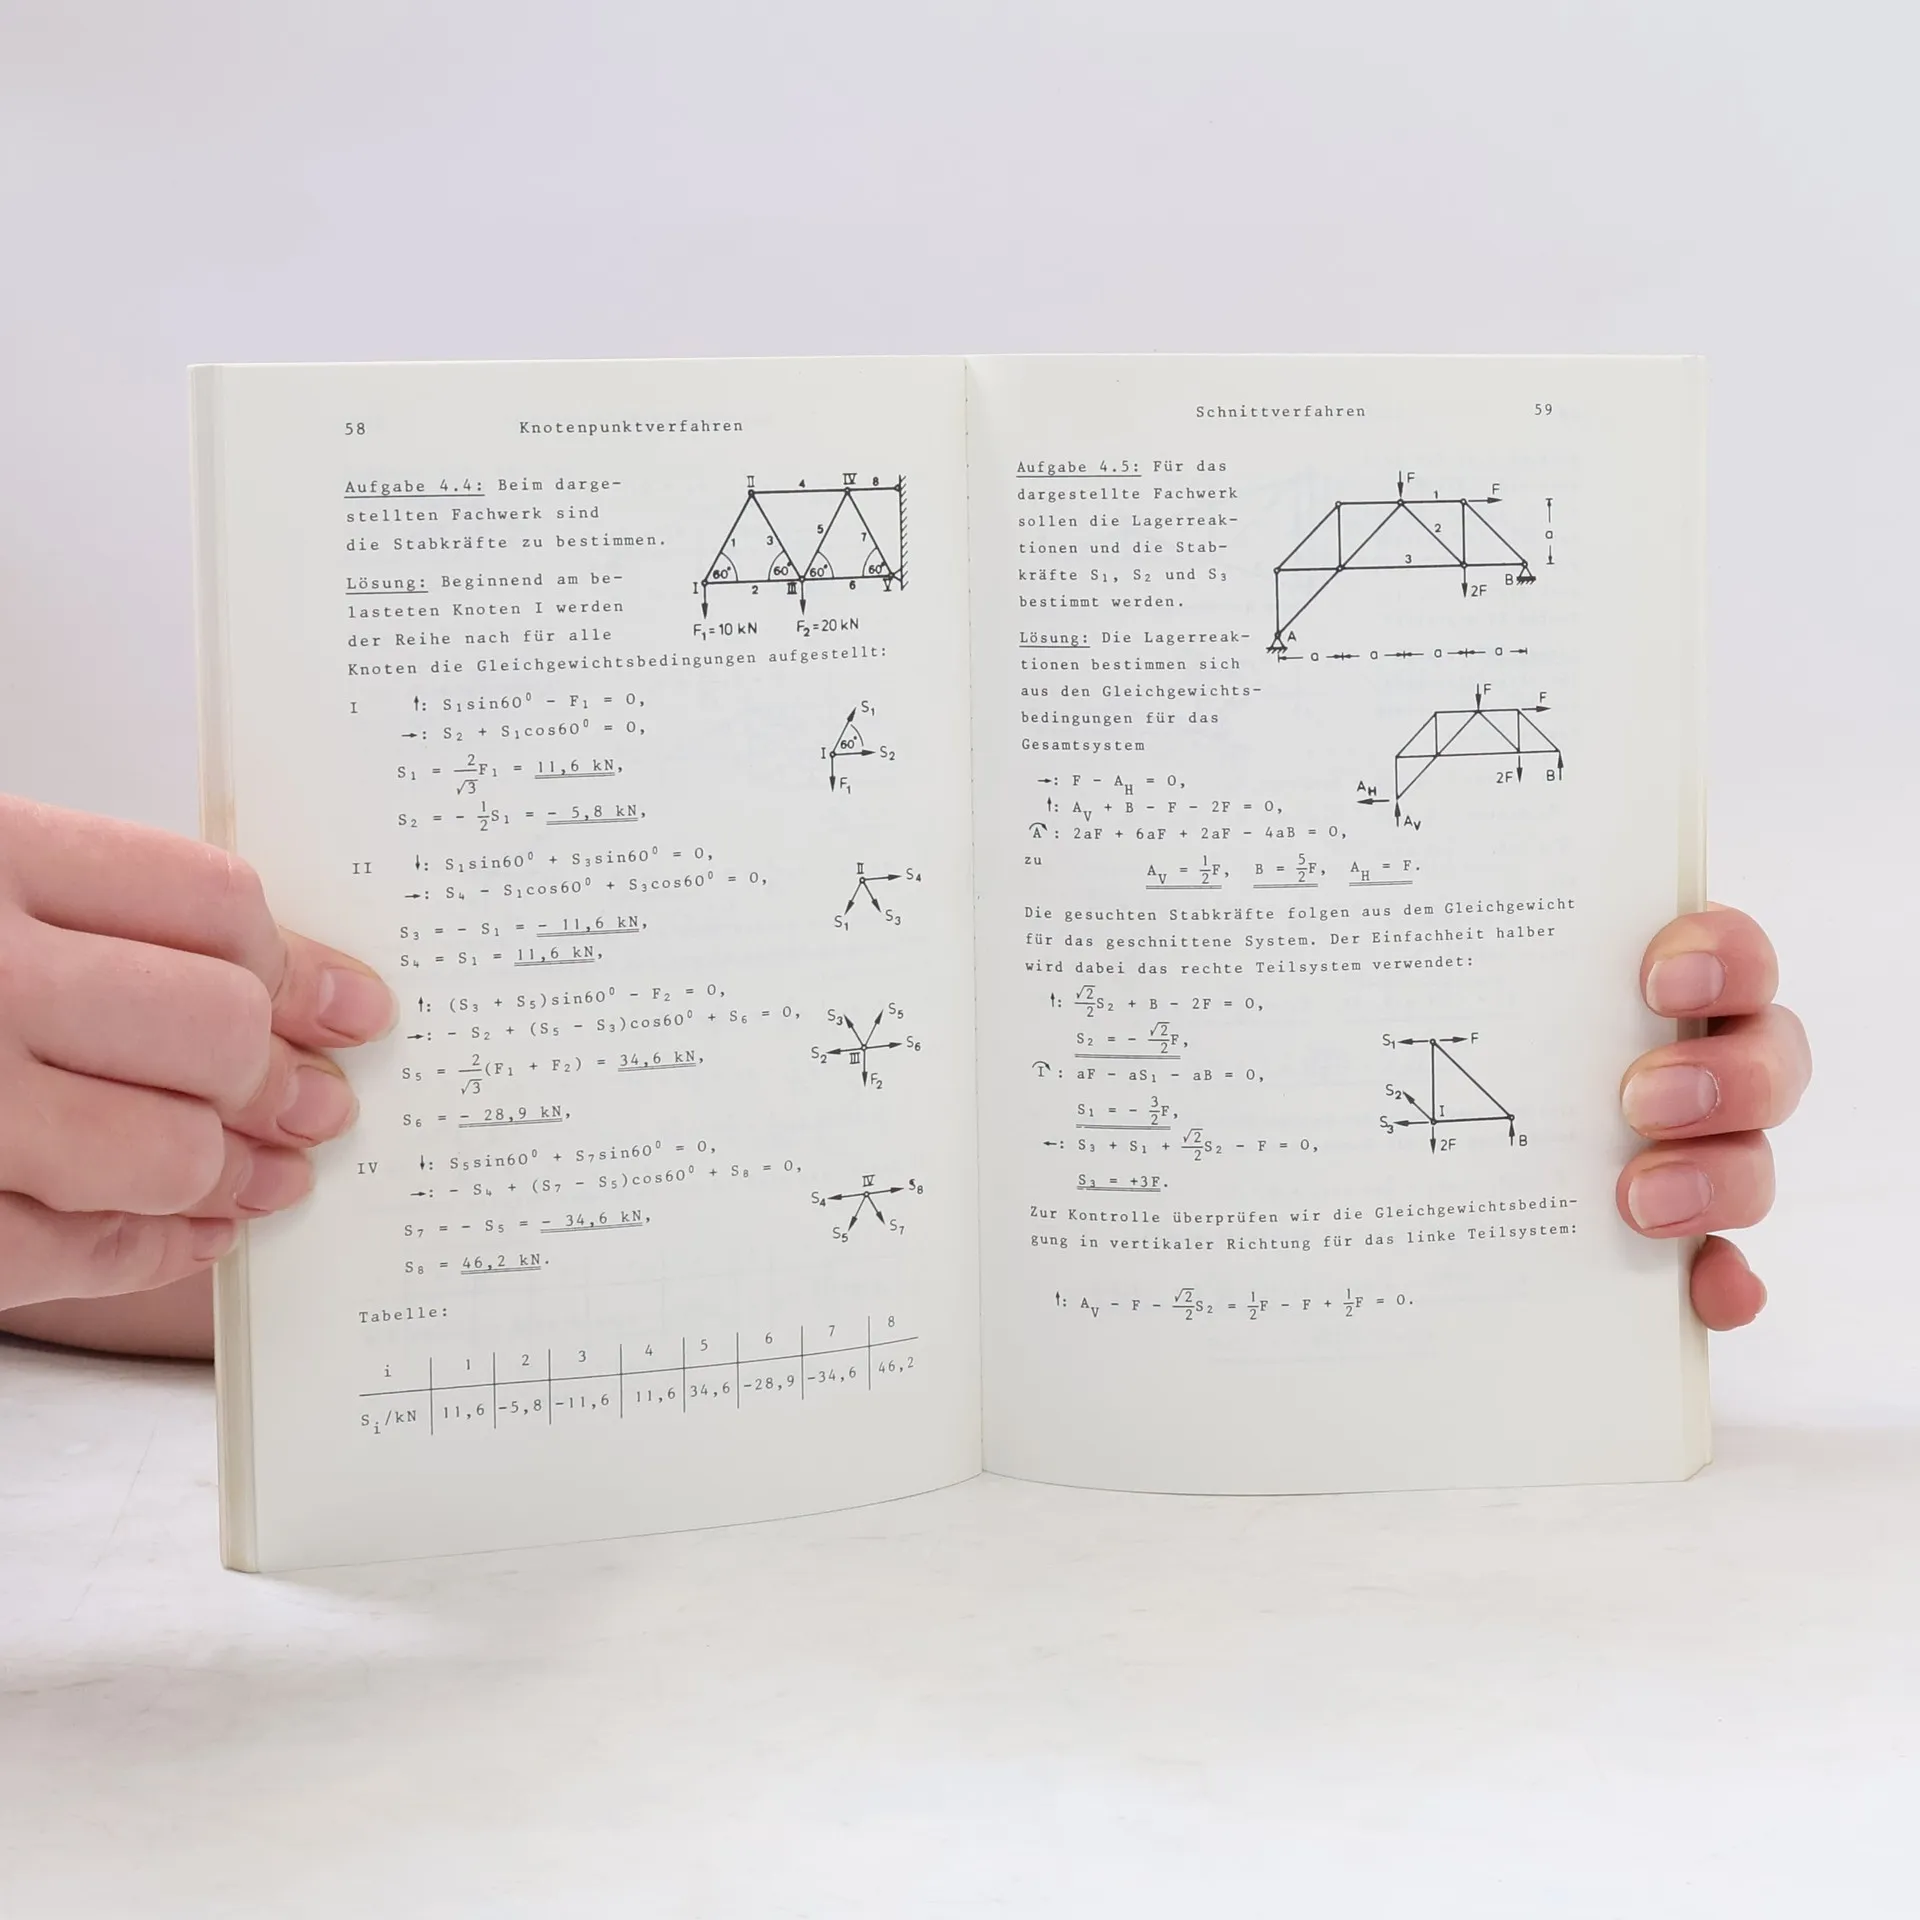 58 Knotenpunktverfahren
Aufgabe 4.4: Beim darge-
stellten Fachwerk sind
die Stabkräfte zu bestimmen.
Lösung: Beginnend am be-
lasteten Knoten I werden
der Reihe nach für alle
Knoten die Gleichgewichtsbedingungen aufgestellt:
II 4 IV 8
1 3 5 7
60° 60° 60° 60°
I 2 III 6 V
F₁=10 kN F₂=20 kN
I ↑: S₁sin60⁰ - F₁ = 0,
→: S₂ + S₁cos60⁰ = 0,
S₁ = 2/√3 F₁ = 11,6 kN,
S₂ = - 1/2 S₁ = - 5,8 kN,
S₁
60°
I S₂
F₁
II ↓: S₁sin60⁰ + S₃sin60⁰ = 0,
→: S₄ - S₁cos60⁰ + S₃cos60⁰ = 0,
S₃ = - S₁ = - 11,6 kN,
S₄ = S₁ = 11,6 kN,
II S₄
S₁ S₃
↑: (S₃ + S₅)sin60⁰ - F₂ = 0,
→: - S₂ + (S₅ - S₃)cos60⁰ + S₆ = 0,
S₅ = 2/√3 (F₁ + F₂) = 34,6 kN,
S₆ = - 28,9 kN,
S₃ S₅
S₂ III S₆
F₂
IV ↓: S₅sin60⁰ + S₇sin60⁰ = 0,
→: - S₄ + (S₇ - S₅)cos60⁰ + S₈ = 0,
S₇ = - S₅ = - 34,6 kN,
S₈ = 46,2 kN.
IV
S₄ S₈
S₅ S₇
Tabelle:
i 1 2 3 4 5 6 7 8
Sᵢ/kN 11,6 -5,8 -11,6 11,6 34,6 -28,9 -34,6 46,2
Schnittverfahren 59
Aufgabe 4.5: Für das
dargestellte Fachwerk
sollen die Lagerreak-
tionen und die Stab-
kräfte S₁, S₂ und S₃
bestimmt werden.
F
1 F
2 a
3
2F B
A
a a a a
Lösung: Die Lagerreak-
tionen bestimmen sich
aus den Gleichgewichts-
bedingungen für das
Gesamtsystem
F
F
2F B
A_H
A_V
→: F - A_H = 0,
↑: A_V + B - F - 2F = 0,
A: 2aF + 6aF + 2aF - 4aB = 0,
zu
A_V = 1/2 F, B = 5/2 F, A_H = F.
Die gesuchten Stabkräfte folgen aus dem Gleichgewicht
für das geschnittene System. Der Einfachheit halber
wird dabei das rechte Teilsystem verwendet:
↑: √2/2 S₂ + B - 2F = 0,
S₂ = - √2/2 F,
I: aF - aS₁ - aB = 0,
S₁ = - 3/2 F,
←: S₃ + S₁ + √2/2 S₂ - F = 0,
S₃ = +3F.
S₁ F
S₂ I
S₃
2F B
Zur Kontrolle überprüfen wir die Gleichgewichtsbedin-
gung in vertikaler Richtung für das linke Teilsystem:
↑: A_V - F - √2/2 S₂ = 1/2 F - F + 1/2 F = 0.